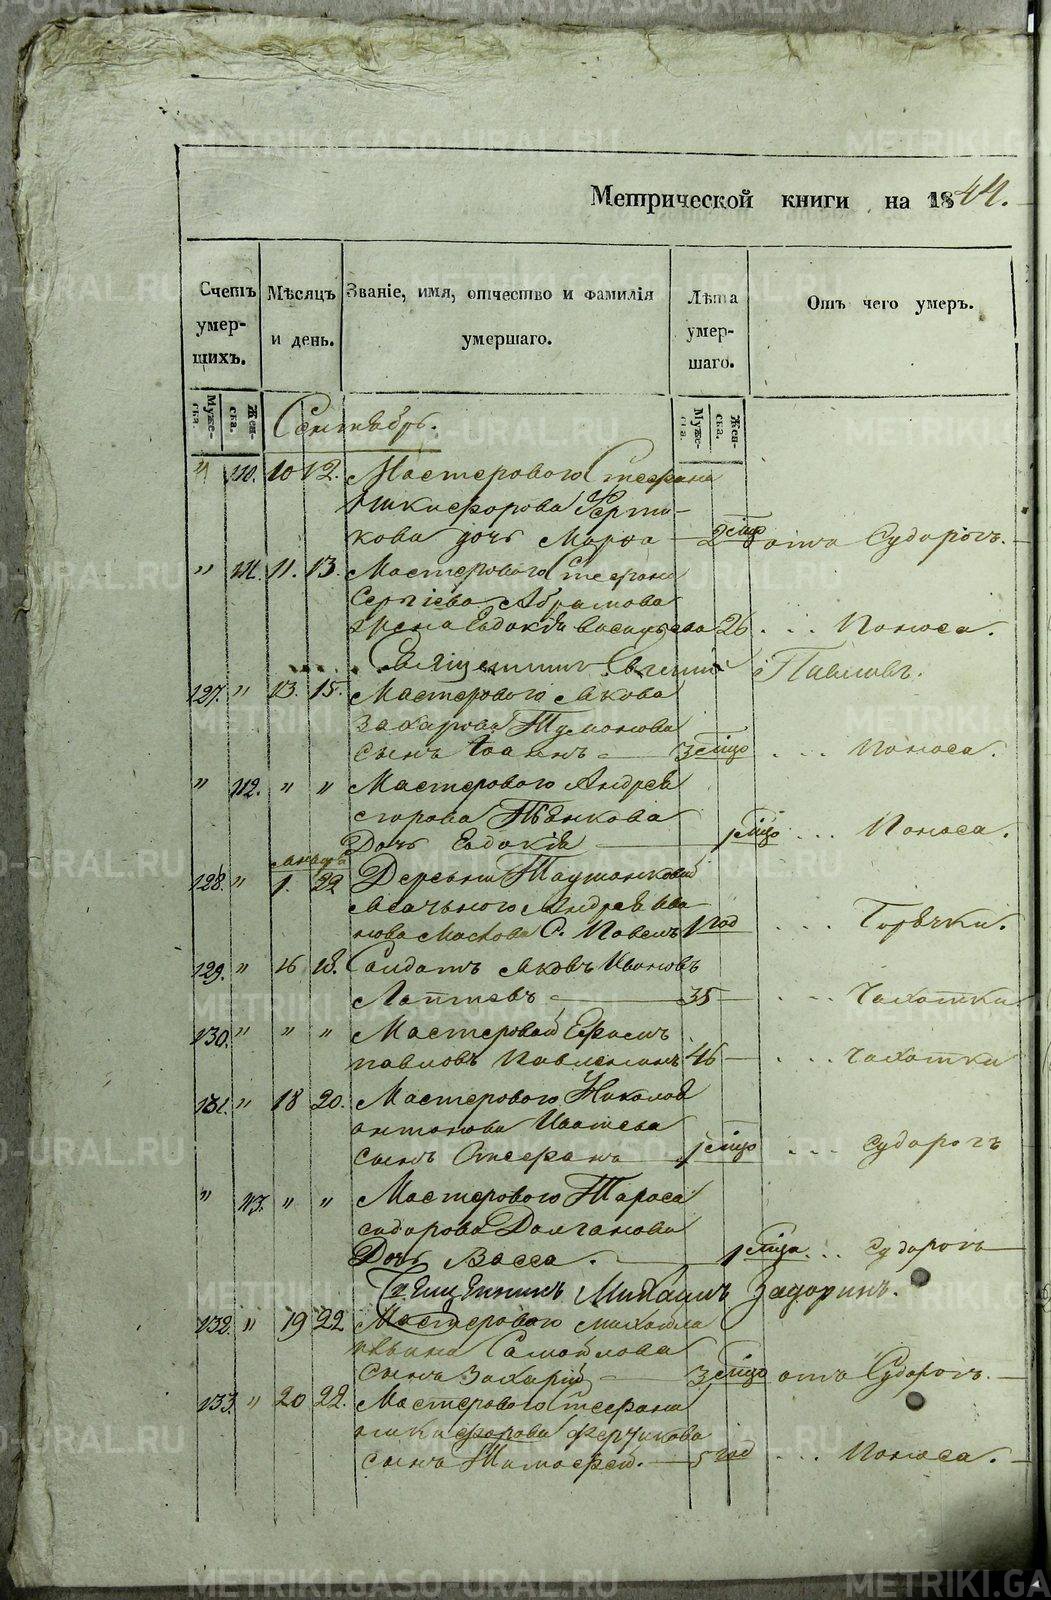 METRIKI.GASO-URAL.RU
Метрической книги на 1844.
Счетъ умер-шихъ.
Мѣсяцъ и день.
Званіе, имя, отчество и фамилія умершаго.
Лѣта умер-шаго.
Отъ чего умеръ.
Муже-ска.
Жен-ска.
Муже-ска.
Жен-ска.
Сентябрь.
" 110. 10 12. Мастероваго Стефана
Никифорова
кова дочь Марѳа 2 мца отъ Судорогъ.
" 111. 11. 13. Мастероваго Стефана
Сергіева Абрамова
жена Евдокія Васильева 26 . . . Поноса.
Священникъ Евгеній Павловъ.
127. " 13. 15. Мастероваго Якова
Захарова Тумонова
сынъ Іоаннъ 3 мца . . . Поноса.
" 112. " " Мастероваго Андрея
егорова
Дочь Евдокія 1 мца . . . Поноса.
128. " 1. 22 Деревни
Андрея Ива
нова Маскова С. Павелъ 1 год . . . Горячки.
129. " 16 18. Солдатъ Яковъ Ивановъ
Лаптевъ 35 . . . Чахотки
130. " " " Мастеровой Ефимъ
павловъ 46 . . . чахотки
131. " 18 20. Мастероваго Николая
антонова Ивачева
сынъ Стефанъ 1 мца . . . судорогъ
" 113. " " Мастероваго Тараса
сидорова Долганова
Дочь Васса. 1 мца . . . судорогъ
Священникъ Михаилъ Задоринъ.
132. " 19 22 Мастероваго михаила
ильина Самойлова
сынъ Захарій 3 мца отъ Судорогъ.
133. " 20 22. Мастероваго стефана
никифорова Фертикова
сынъ Тимофей. 5 год . . . Поноса.